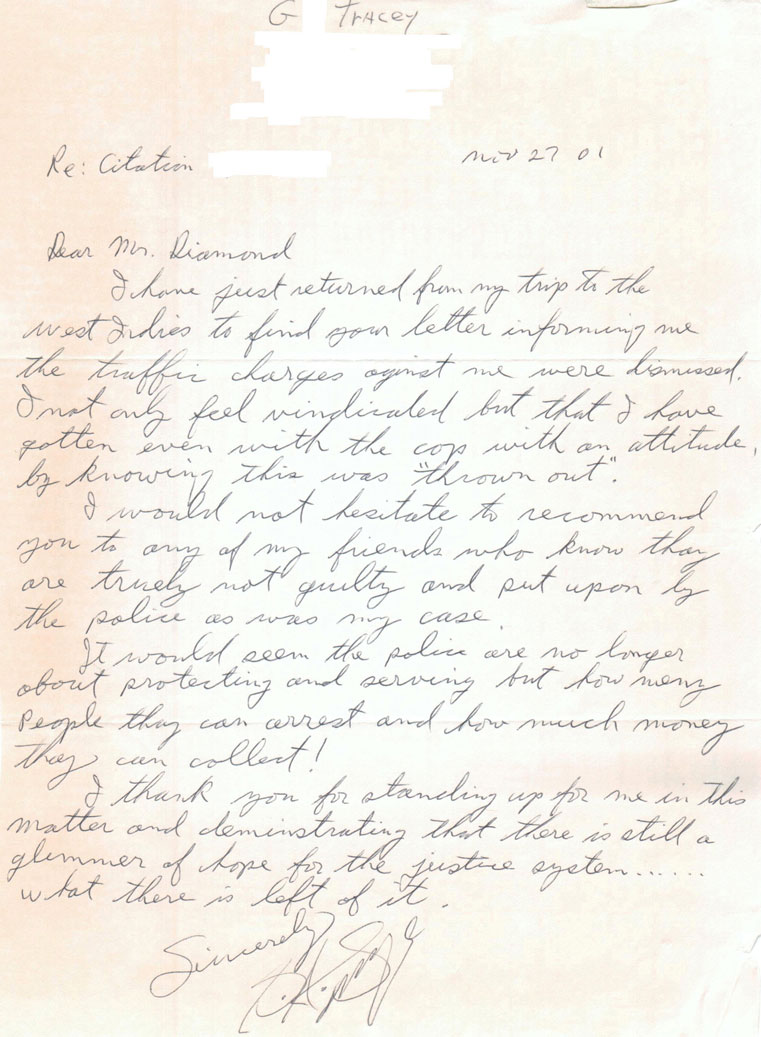 G Tracey
Re: Citation
Nov 27 01
Dear Mr. Diamond
I have just returned from my trip to the
west Idies to find your letter informing me
the traffic charges aginst me were dismissed.
I not only feel vindicated but that I have
gotten even with the cop with an attitude,
by knowing this was "thrown out".
I would not hesitate to recommend
you to any of my friends who know thay
are truely not guilty and put upon by
the police as was my case.
It would seem the police are no longer
about protecting and serving but how meny
people thay can arrest and how much money
thay can collect!
I thank you for standing up for me in this
matter and deminstrating that there is still a
glimmer of hope for the justice system......
what there is left of it.
Sincerely